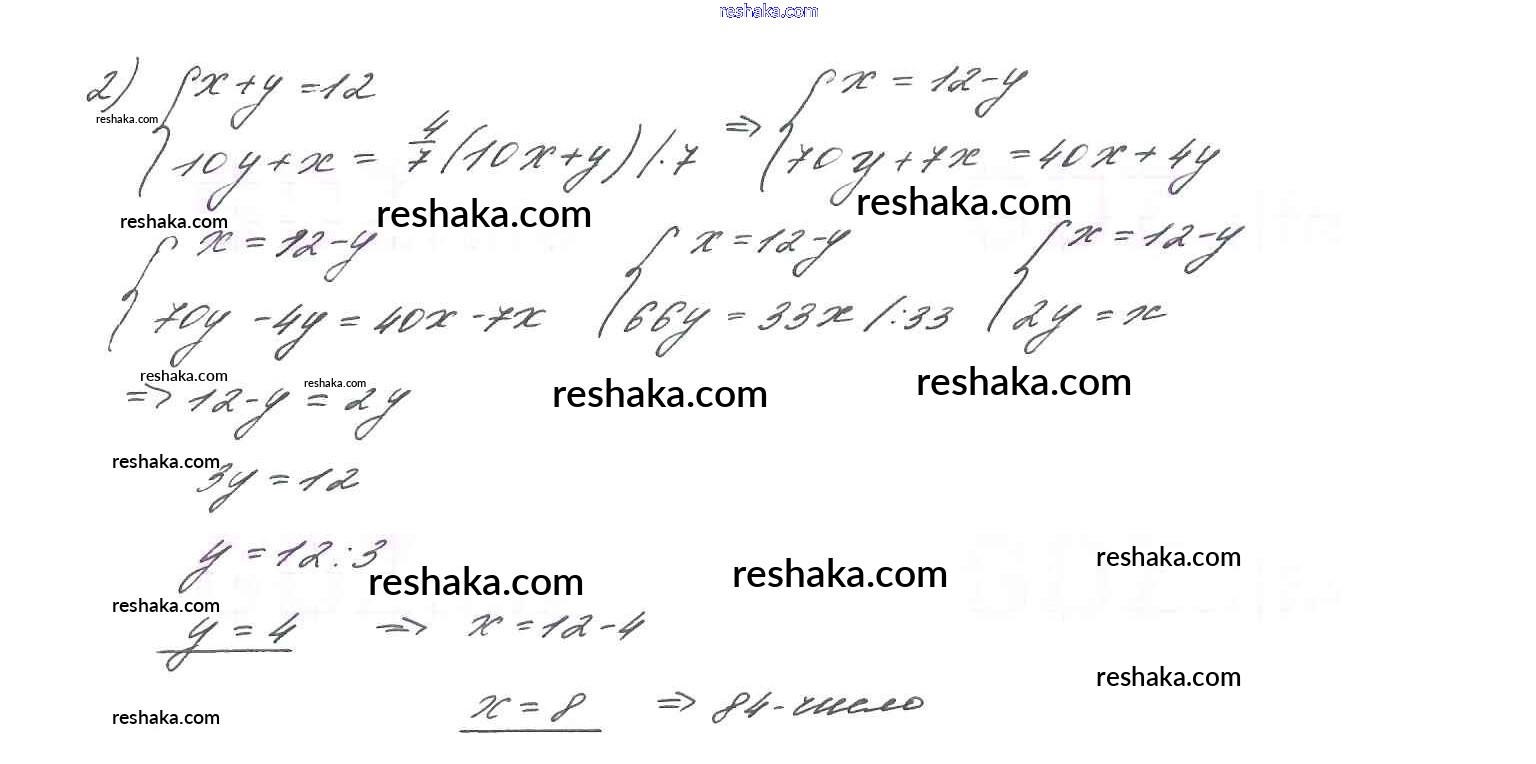 reshaka.com
2) { x + y = 12 => { x = 12 - y
reshaka.com
10y + x = 4/7 (10x + y) / · 7 70y + 7x = 40x + 4y
reshaka.com reshaka.com reshaka.com
{ x = 12 - y { x = 12 - y { x = 12 - y
70y - 4y = 40x - 7x 66y = 33x / : 33 2y = x
reshaka.com reshaka.com reshaka.com reshaka.com
=> 12 - y = 2y
reshaka.com
3y = 12
y = 12 : 3
reshaka.com reshaka.com reshaka.com
reshaka.com
y = 4 => x = 12 - 4
reshaka.com
x = 8 => 84 - число
reshaka.com